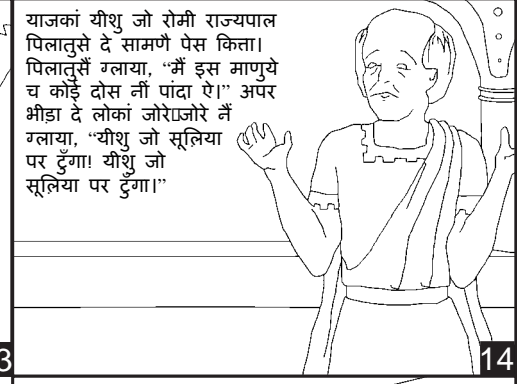 याजकां यीशु जो रोमी राज्यपाल
पिलातुसे दे सामणै पेस किता।
पिलातुसैं ग्लाया, “मैं इस माणुये
च कोई दोस नीं पांदा ऐ।” अपर
भीड़ा दे लोकां जोरे जोरे नैं
ग्लाया, “यीशु जो सूल़िया
पर टुँगा! यीशु जो
सूल़िया पर टुँगा।”
3
14